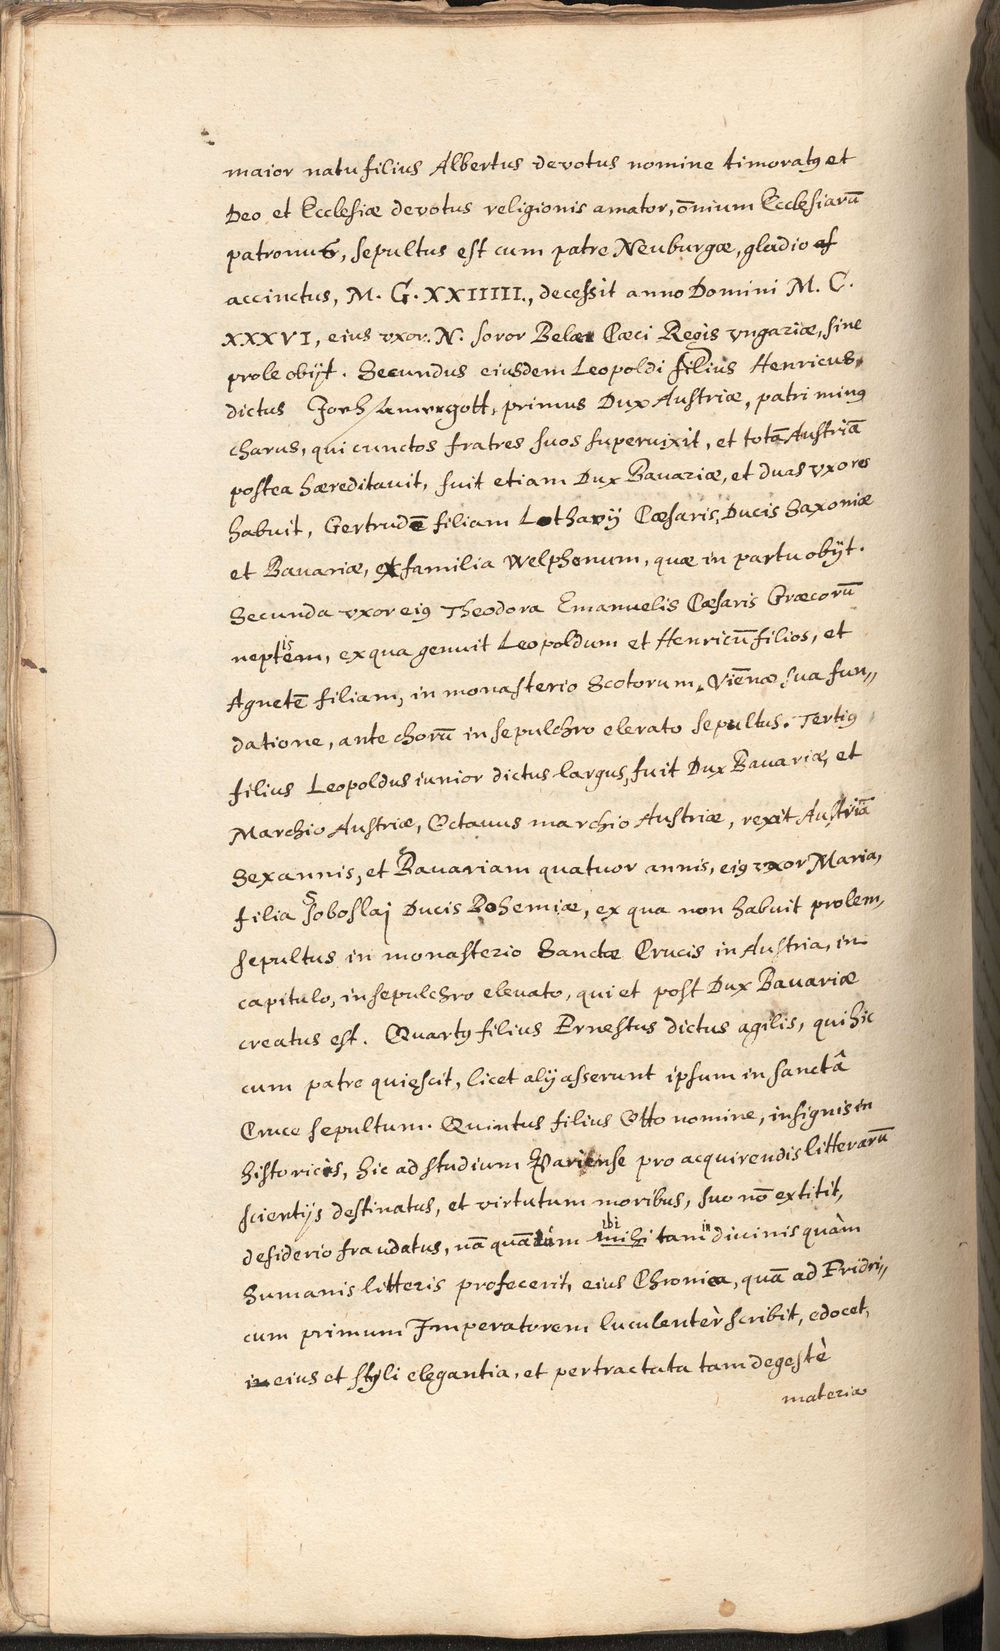 maior natu filius Albertus devotus nomine timoratꝰ et
Deo et Ecclesiæ devotus religionis amator, ōnium Ecclesiarū
patronus, sepultus est cum patre Neuburgæ, gladio
accinctus, M. G. XXIIIII., decessit anno Domini M. C.
XXXVI, eius vxor. N. soror Belæ Cæci Regis vngariæ, sine
prole obijt. Secundus eiusdem Leopoldi filius Henricus,
dictus Joch samergott, primus Dux Austriæ, patri minꝰ
charus, qui cunctos fratres suos superuixit, et totā Austriā
postea hæreditauit, fuit etiam Dux Bauariæ, et duas vxores
habuit, Gertrudē filiam Lotharij Cæsaris, Ducis Saxoniæ
et Bauariæ, ex familia Welphonum, quæ in partu obijt.
Secunda vxor eiꝰ Theodora Emanuelis Cæsaris Græcorū
neptis, ex qua genuit Leopoldum et Henricū filios, et
Agnetē filiam, in monasterio Scotorum, Viēnæ sua fun„
datione, ante chorū in sepulchro elevato sepultus. Tertiꝰ
filius Leopoldus iunior dictus largus, fuit Dux Bauariæ, et
Marchio Austriæ, Octauus marchio Austriæ, rexit Austriā
Sex annis, et Bauariam quatuor annis, eiꝰ vxor Maria,
filia Soboslaj Ducis Bohemiæ, ex qua non habuit prolem,
sepultus in monasterio Sanctæ Crucis in Austria, in
capitulo, in sepulchro eleuato, qui et post Dux Bauariæ
creatus est. Quartꝰ filius Ernestus dictus agilis, qui hic
cum patre quiescit, licet alij asserunt ipsum in sanctâ
Cruce sepultum. Quintus filius Otto nomine, insignis in
historicis, hic ad studium Pariense pro acquirendis litterarū
scientijs destinatus, et virtutum moribus, suo nō extitit,
desiderio fraudatus, nā quātum ibi tam in diuinis quàm
humanis litteris profecerit, eius Chronica, quā ad Fridri„
cum primum Imperatorem luculentèr scribit, edocet,
eius et styli elegantia, et pertractata tam degestè
materiæ